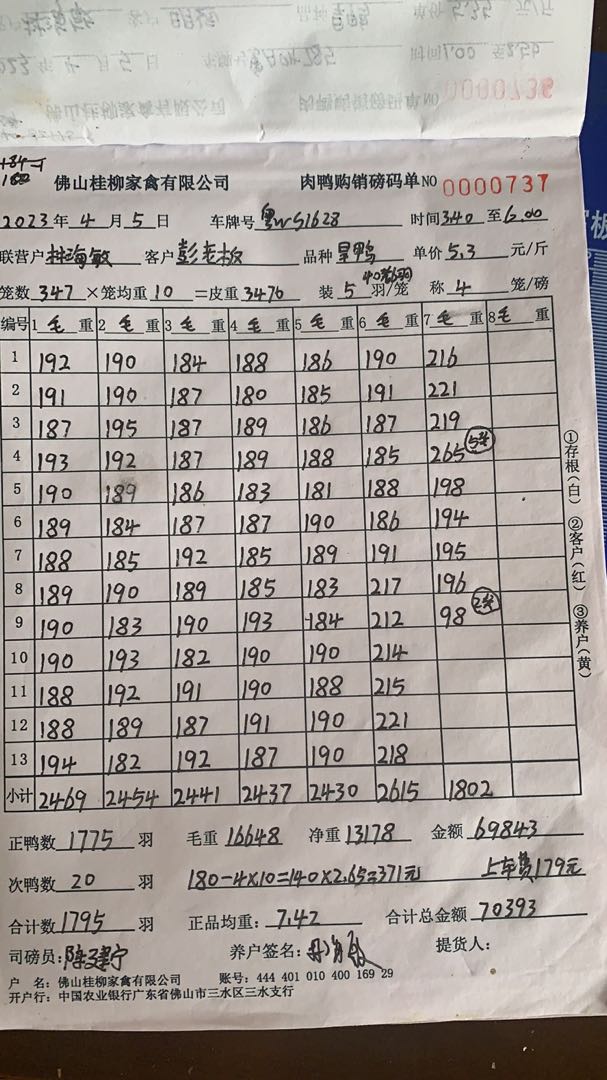 NO 0000738
+84=
180
佛山桂柳家禽有限公司 肉鸭购销磅码单NO 0000737
2023年4月5日 车牌号 粤W51628 时间340至6.00
联营户 林海敏 客户 彭老板 品种 旱鸭 单价5.3元/斤
笼数347×笼均重10=皮重3470 装5羽/笼 称4笼/磅
编号 1毛重 2毛重 3毛重 4毛重 5毛重 6毛重 7毛重 8毛重
1 192 190 184 188 186 190 216
2 191 190 187 180 185 191 221
3 187 195 187 189 186 187 219
4 193 192 187 189 188 185 265 5笼
5 190 189 186 183 181 188 198
6 189 184 187 187 190 186 194
7 188 185 192 185 189 191 195
8 189 190 189 185 183 217 196
9 190 183 190 193 184 212 98 2笼
10 190 193 182 190 190 214
11 188 192 191 190 188 215
12 188 189 187 191 190 221
13 194 182 192 187 190 218
小计 2469 2454 2441 2437 2430 2615 1802
正鸭数1775羽 毛重16648 净重13178 金额69843
次鸭数20羽 180-4×10=140×2.65=371元 上车费179元
合计数1795羽 正品均重：7.42 合计总金额70393
司磅员：陈建宁 养户签名： 提货人：
户 名：佛山桂柳家禽有限公司 账号：444 401 010 400 169 29
开户行：中国农业银行广东省佛山市三水区三水支行
①存根(白) ②客户(红) ③养户(黄)